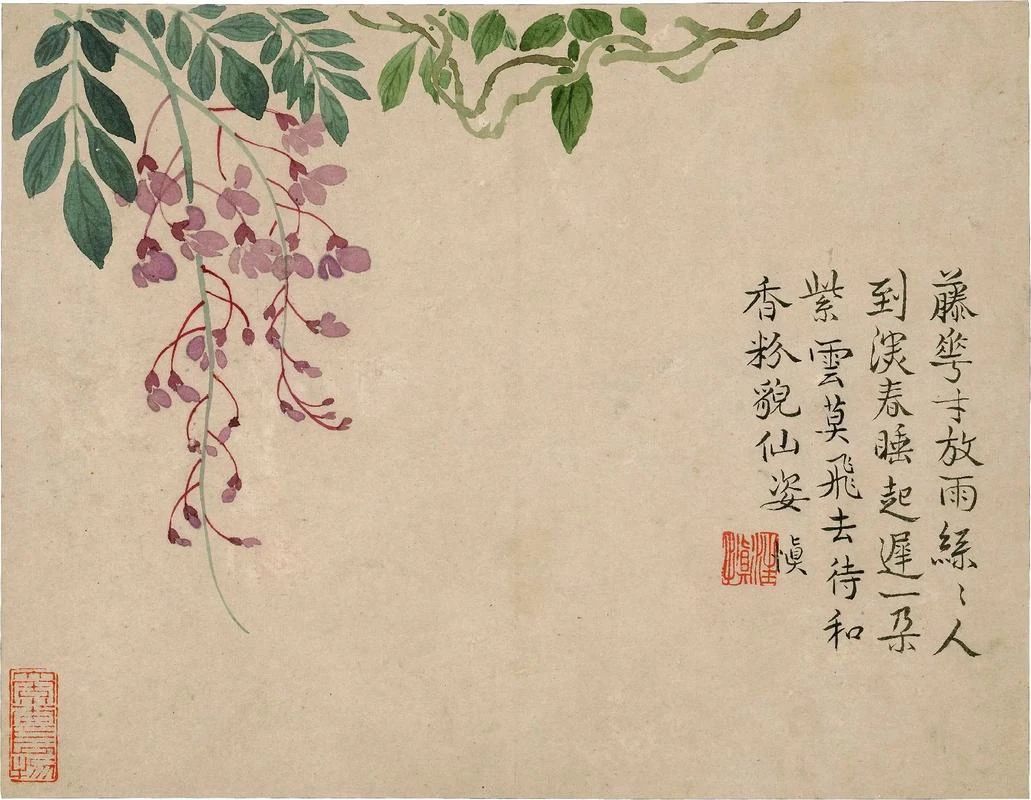 藤華才放雨絲〻人
到深春睡起遲一朵
紫雲莫飛去待和
香粉貌仙姿
慎
汪士慎